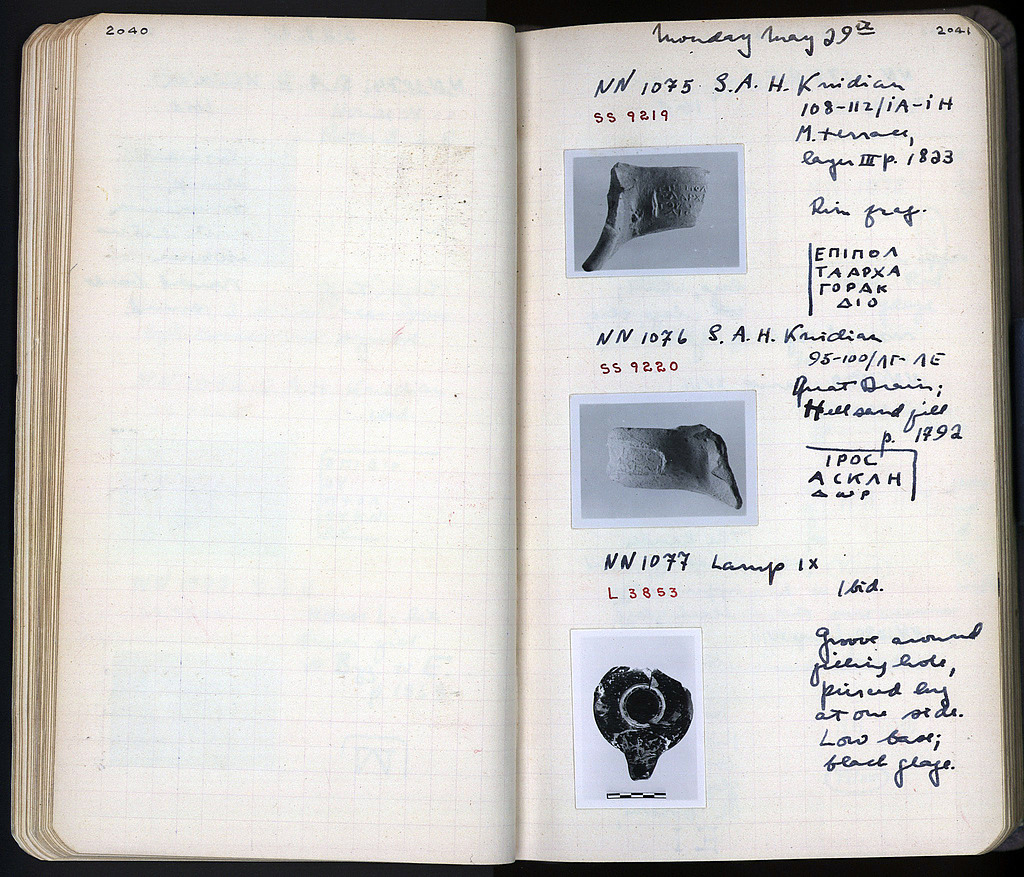 2040
2041
Monday May 29th
NN 1075 S.A.H. Knidian
SS 9219
108-112/ΙΑ-ΙΗ
M. terrace,
layer III p. 1823
Rim frag.
ΕΠΙΠΟΛ
ΤΑΑΡΧΑ
ΓΟΡΑΚ
ΔΙΟ
NN 1076 S.A.H. Knidian
SS 9220
95-100/ΛΓ-ΛΕ
Great Drain;
Hell sand fill
p. 1792
ΙΡΟC
ΑCΚΛΗ
ΔωΡ
NN 1077 Lamp IX
L 3853
Ibid.
Groove around
filling hole,
pierced lug
at one side.
Low base;
black glaze.